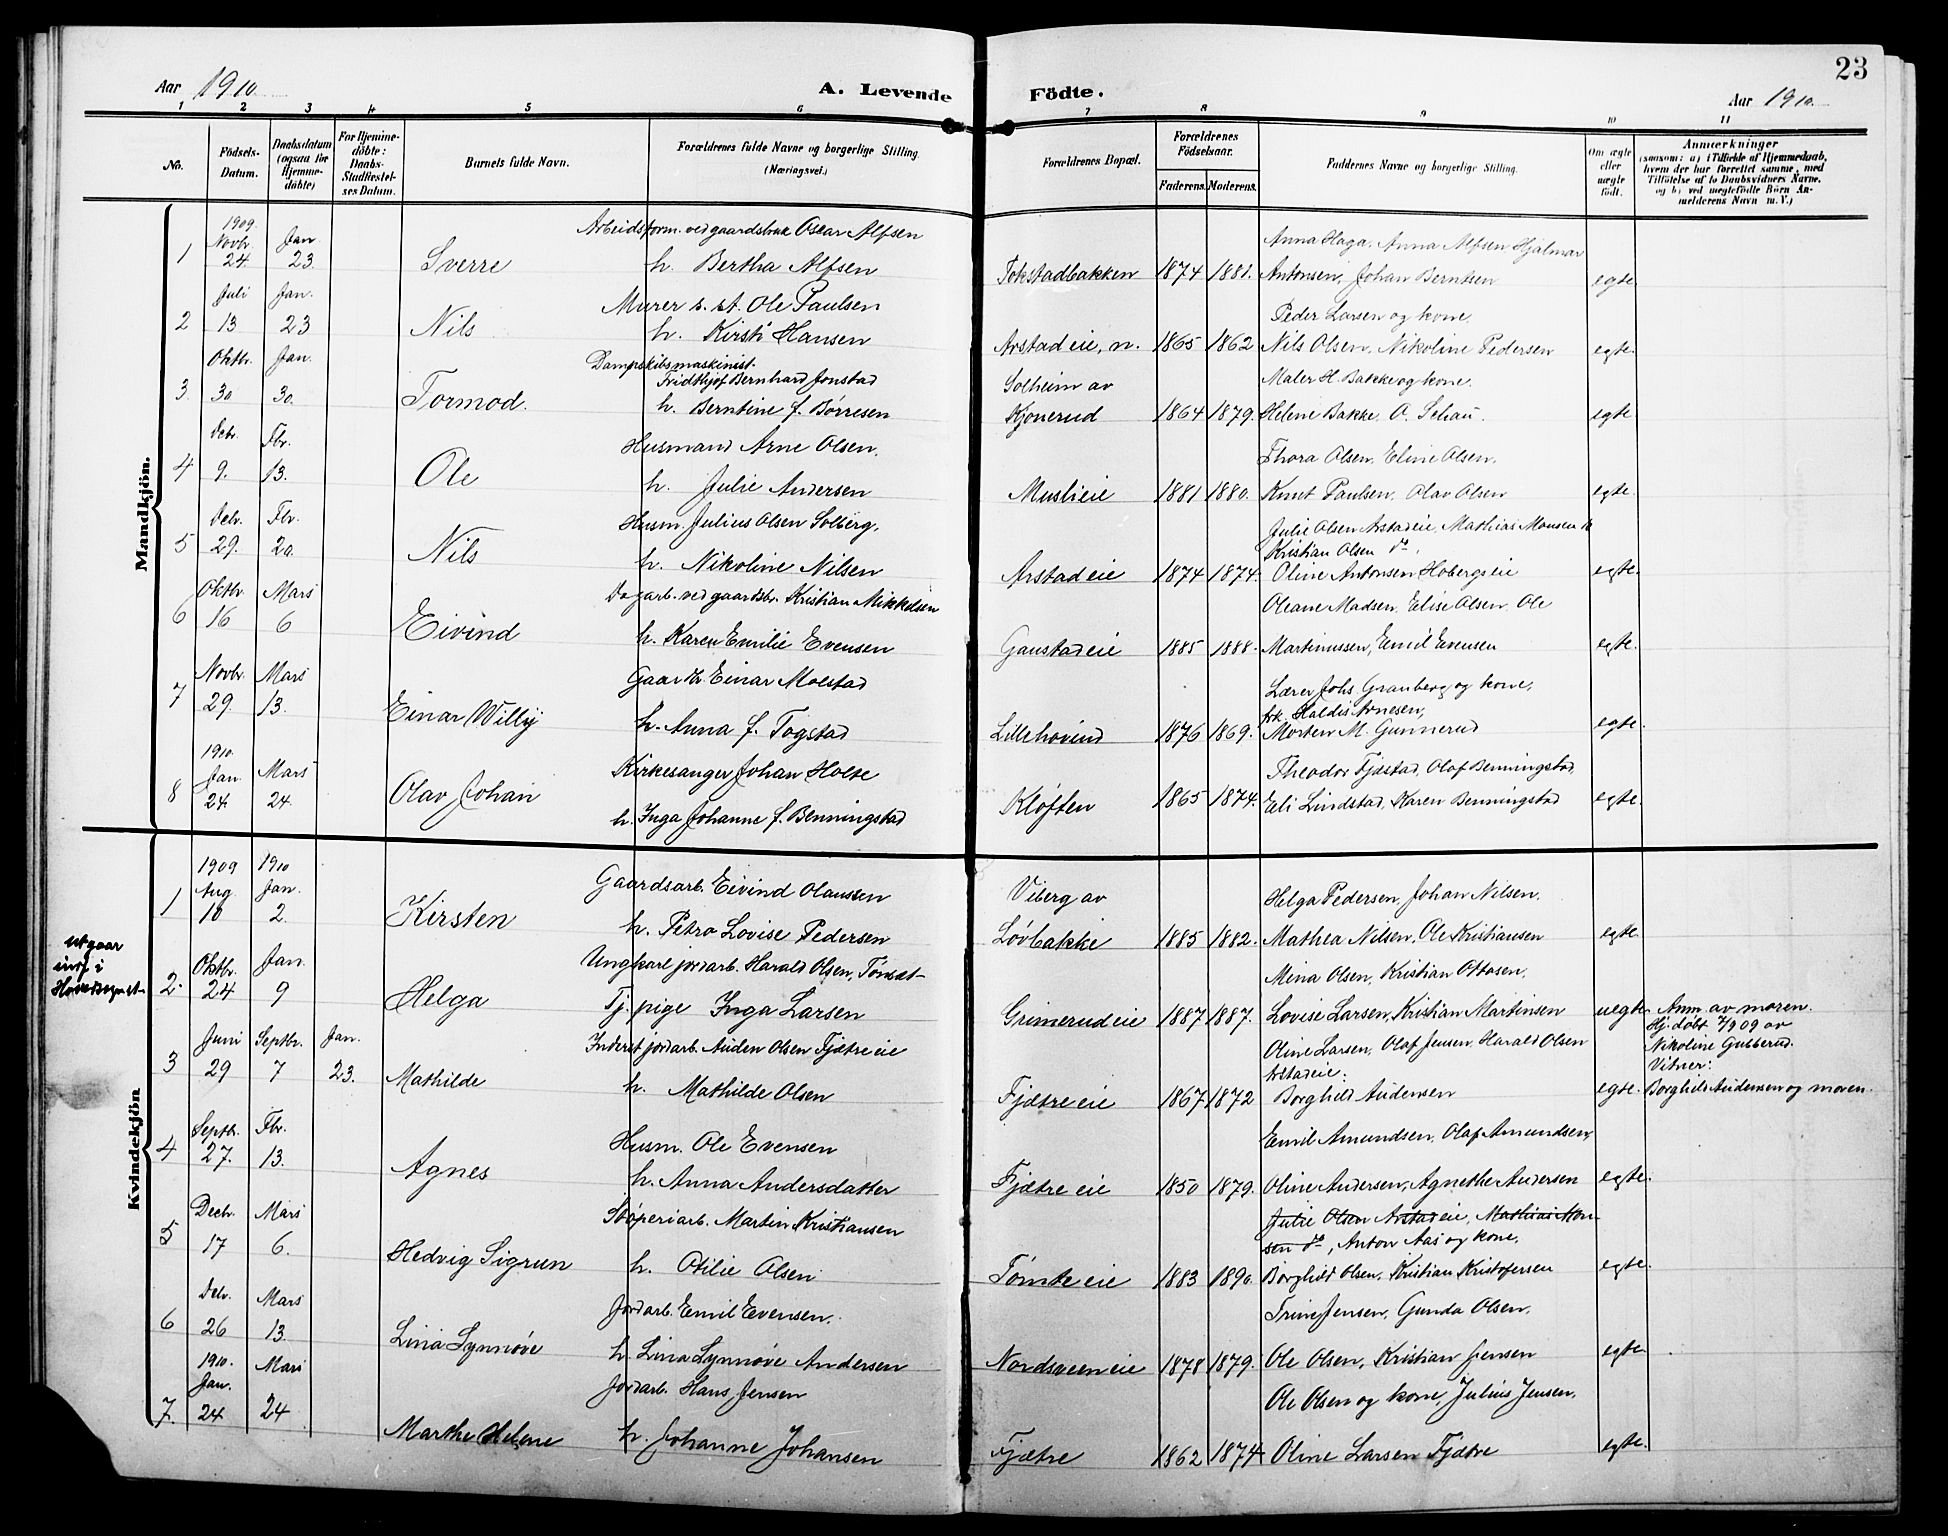 23
Aar 1910 A. Levende Födte. Aar 1910
1 2 3 4 5 6 7 8 9 10 11
No. Födsels-Datum. Daabsdatum (ogsaa for Hjemmedöbte) For Hjemmedöbte: Daabs-Stadfæstelses Datum. Barnets fulde Navn. Forældrenes fulde Navne og borgerlige Stilling. (Næringsvei.) Forældrenes Bopæl. Forældrenes Födselsaar. Faderens. Moderens. Faddernes Navne og borgerlige Stilling. Om ægte eller uægte födt. Anmærkninger (saasom: a) i Tilfælde af Hjemmedaab, hvem der har forrettet samme, med Tilföielse af to Daabsvidners Navne, og b) ved uægtefödte Börn Anmelderens Navn m. V.)
Mandkjön.
1909 Arbeidsform. ved gaardsbruk Oscar Alfsen Anna Haga, Anna Alfsen Hjalmar
1 Novbr. 24. Jan 23. Sverre h. Bertha Alfsen Tokstadbakken 1874 1881. Antonsen, Johan Berntsen egte.
Murer s. st. Ole Paulsen Peder Larsen og kone,
2 Juli 13 Jan. 23 Nils h. Kirsti Hansen Arstadeie, n. 1865 1862 Nils Olsen, Nikoline Pedersen egte.
Dampskibsmaskinist.
Fridthjof Bernhard Jonstad Solheim av Maler H. Bakke og kone,
3 Oktbr. 30 Jan. 30. Tormod. h. Berntine f. Børresen Kjonerud 1864 1879. Helene Bakke, O. Schau. egte
Husmand Arne Olsen, Thora Olsen, Eline Olsen,
4 Decbr. 9. Fbr. 13. Ole h. Julie Andersen Muslieie 1881 1880. Knut Paulsen, Olav Olsen egte.
Husm. Julius Olsen Solberg, Julie Olsen Arstadeie, Mathias Monsen
Kristian Olsen do,
5 Decbr. 29. Fbr. 20. Nils h. Nikoline Nilsen Arstadeie 1874 1874. Oline Antonsen Hobergseie egte.
Dagarb. ved gaardsbr. Kristian Mikkelsen Oleane Madsen, Elise Olsen, Ole
6 Oktbr 16 Mars 6 Eivind h. Karen Emilie Evensen Gaustadeie 1885 1888. Martinussen, Emil Evensen egte.
Gaardbr. Einar Molstad Lærer Johs. Granberg og kone,
frk. Haldis Arnesen,
7 Novbr. 29. Mars 13. Einar Willy h. Anna f. Togstad Lillehovind 1876 1869. Morten M. Gunnerud egte.
1910. Kirkesanger Johan Holte Theodor Fjøstad, Olaf Benningstad,
8 Jan. 24. Mars 24. Olav Johan h. Inga Johanne f. Benningstad Kløften 1865 1874. Eli Lindstad, Karen Benningstad egte.
Kvindekjön
1909 1910 Gaardsarb. Eivind Olaussen Viberg av Helga Pedersen, Johan Nilsen,
1 Aug. 10 Jan. 2. Kirsten h. Petra Lovise Pedersen Løvbakke 1885 1882. Mathea Nilsen, Ole Kristiansen egte
utgaar
indf i
Ungkarl jordarb. Harald Olsen, Tømte- Mina Olsen, Kristian Ottosen,
2. Oktbr. 24 Jan. 9 Helga Tj. pige Inga Larsen Grimerudeie 1887 1887. Lovise Larsen, Kristian Martinsen uegte. Anm. av moren.
Inderst jordarb. Auden Olsen Fjætreeie Oline Larsen, Olaf Jensen, Harald Olsen Hj. døbt 7/9 09 av
Arstadeie. Nikoline Gubberud.
Vitner:
3 Juni 29 Septbr. 7 Jan. 23. Mathilde h. Mathilde Olsen Fjætreeie 1867 1872 Borghild Audensen egte. Borghild Audensen og moren.
Husm. Ole Evensen Emil Amundsen, Olaf Amundsen,
4 Septbr. 27. Fbr. 13. Agnes h. Anna Andersdatter Fjætreeie 1850 1879. Oline Andersen, Agnethe Andersen egte.
Støperiarb. Martin Kristiansen Julie Olsen Arstadeie, Mathias Mon-
sen do, Anton Aas og kone,
5 Decbr. 17 Mars 6. Hedvig Sigrun h. Otilie Olsen Tømteeie 1883 1890. Borghild Olsen, Kristian Kristofersen egte.
Jordarb. Emil Evensen. Trine Jensen, Gunda Olsen,
6 Decbr. 26 Mars 13. Lina Synnøve h. Lina Synnøve Andersen Nordsveeneie 1878 1879. Ole Olsen, Kristian Jensen egte
1910. Jordarb. Hans Jensen Ole Olsen og kone, Julius Jensen,
7. Jan. 24 Mars 24 Marthe Helene h. Johanne Johansen Fjætre 1862 1874 Oline Larsen Fjætre egte.